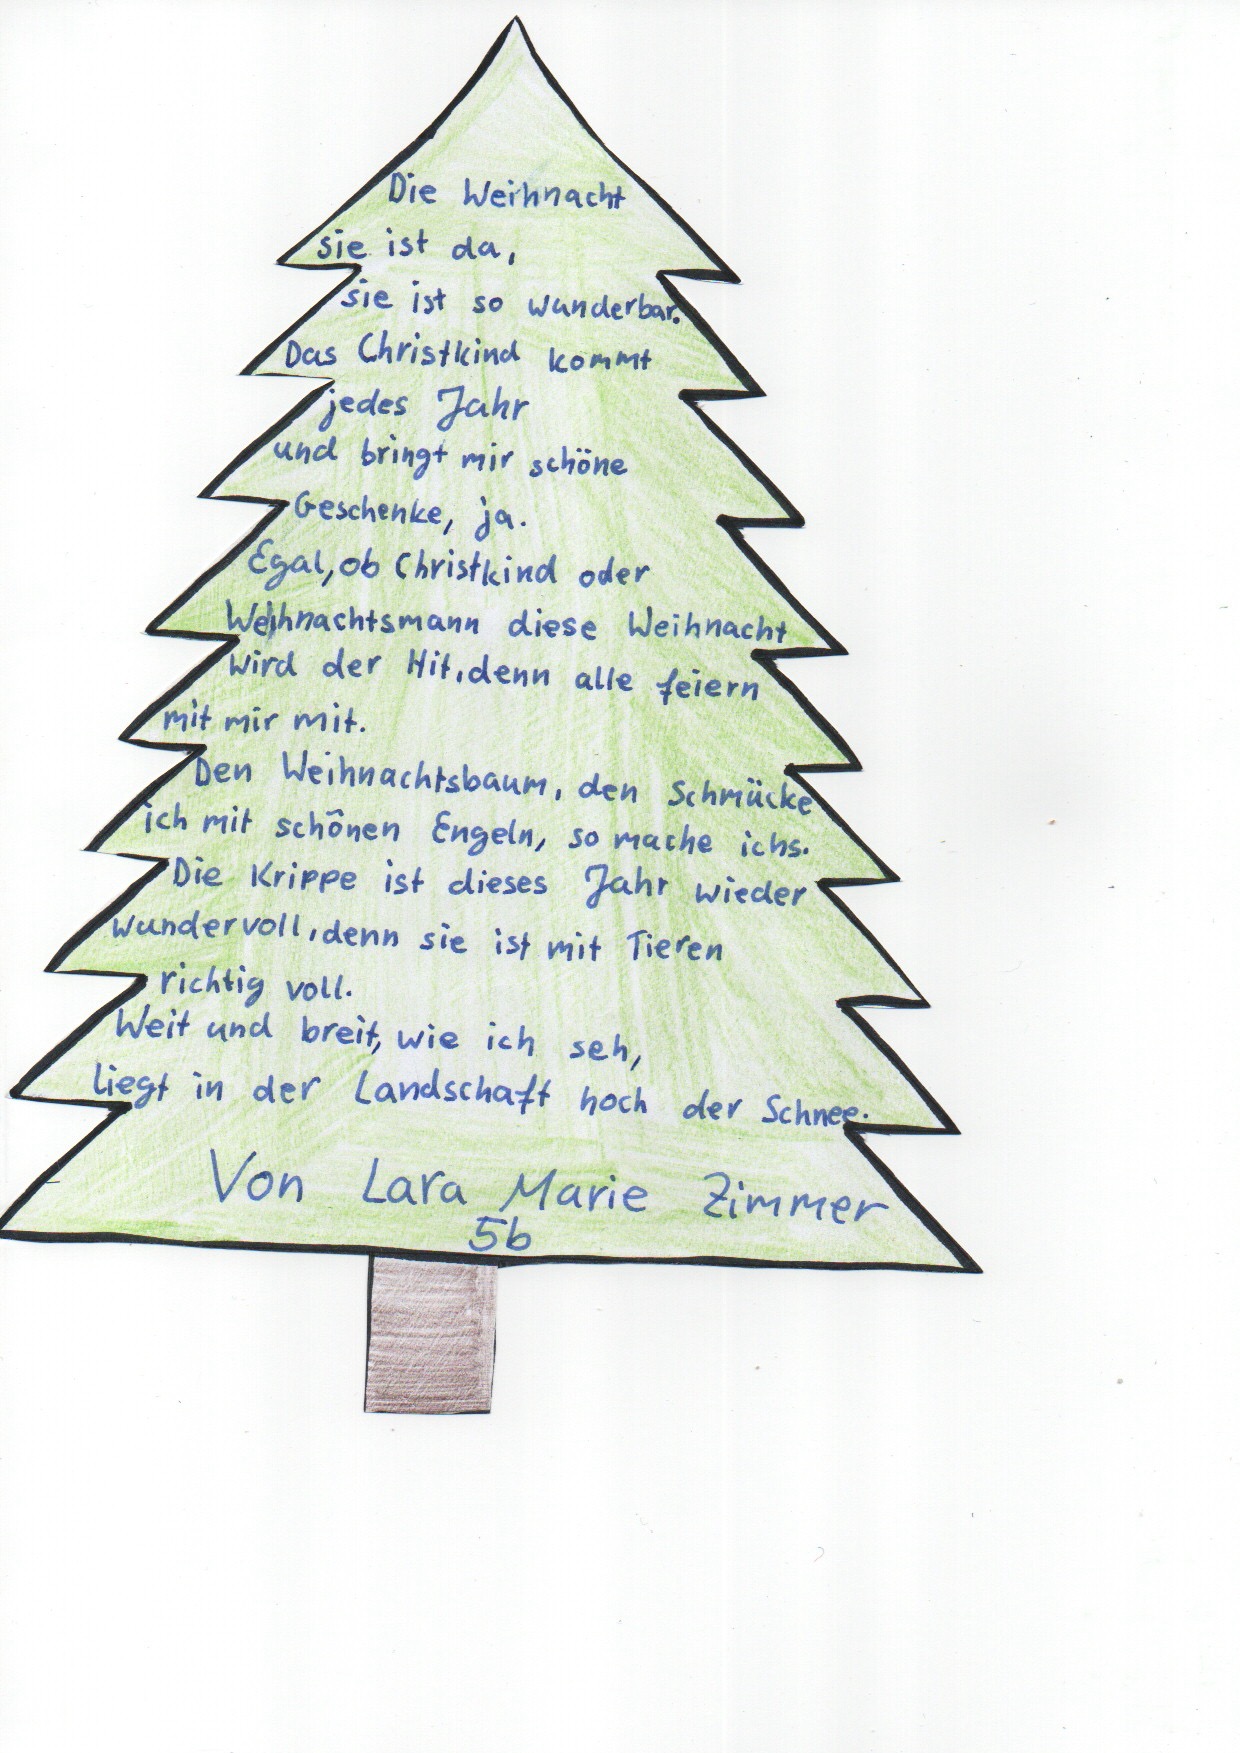 Die Weihnacht
sie ist da,
sie ist so wunderbar.
Das Christkind kommt
jedes Jahr
und bringt mir schöne
Geschenke, ja.
Egal, ob Christkind oder
Weihnachtsmann diese Weihnacht
wird der Hit, denn alle feiern
mit mir mit.
Den Weihnachtsbaum, den Schmücke
ich mit schönen Engeln, so mache ichs.
Die Krippe ist dieses Jahr wieder
wundervoll, denn sie ist mit Tieren
richtig voll.
Weit und breit, wie ich seh,
liegt in der Landschaft hoch der Schnee.
Von Lara Marie Zimmer
5b